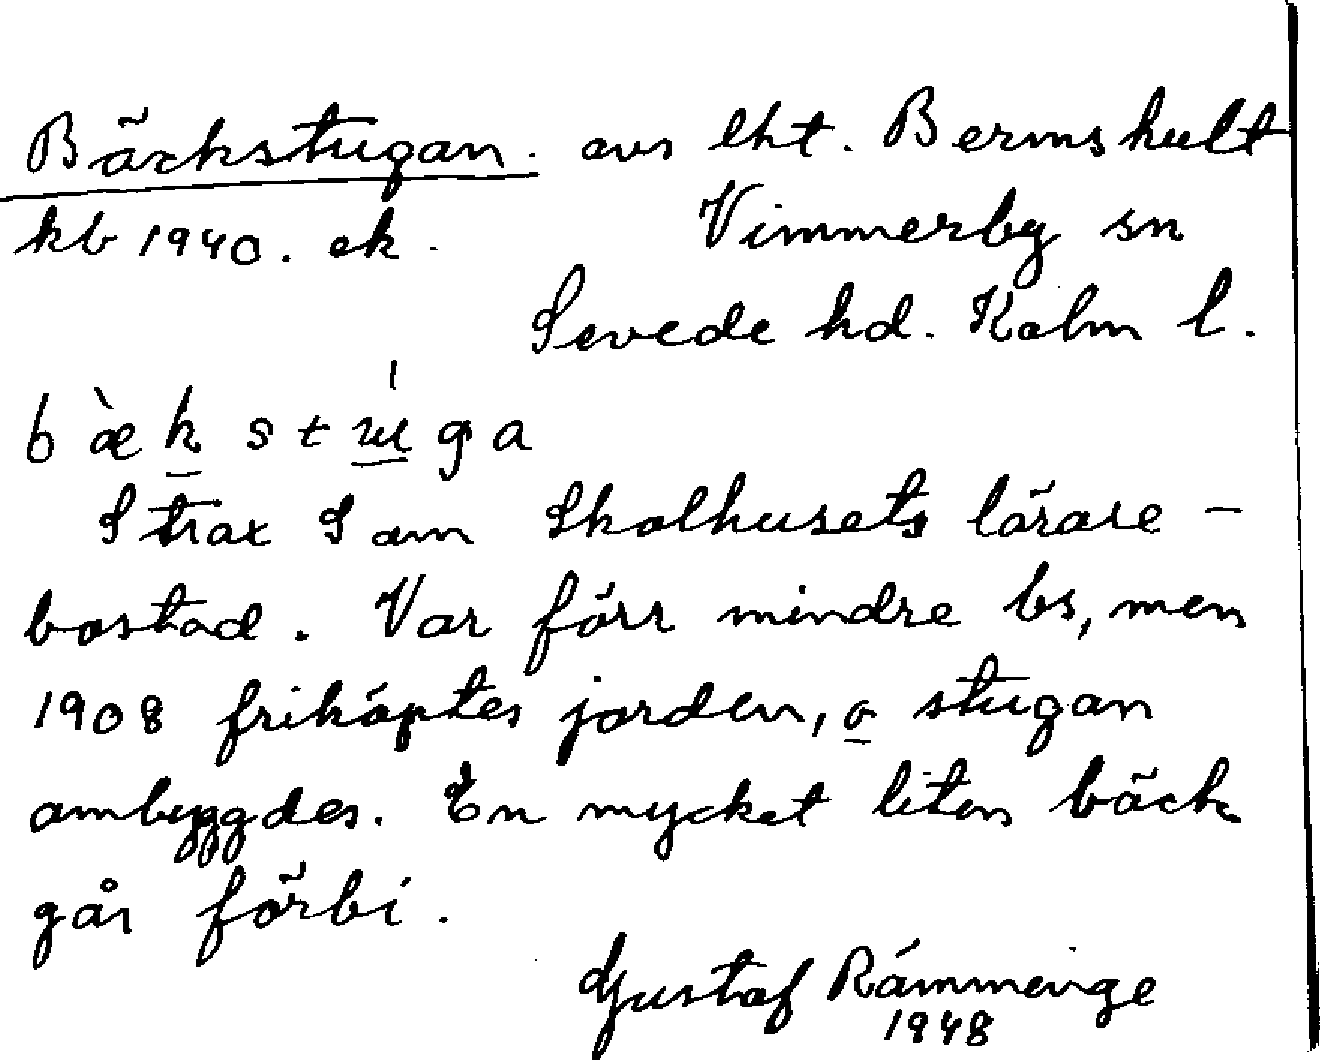 Bäckstugan. avs lht. Bermshult
kb 1940. ek. Vimmerby sn
Sevede hd. Kalm l.
bæ̀kstúga
Strax S om Skolhusets lärare-
bostad. Var förr mindre ls, men
1908 friköptes jorden, o stugan
ombyggdes. En mycket liten bäck
går förbi.
Gustaf Rämmenge
1948